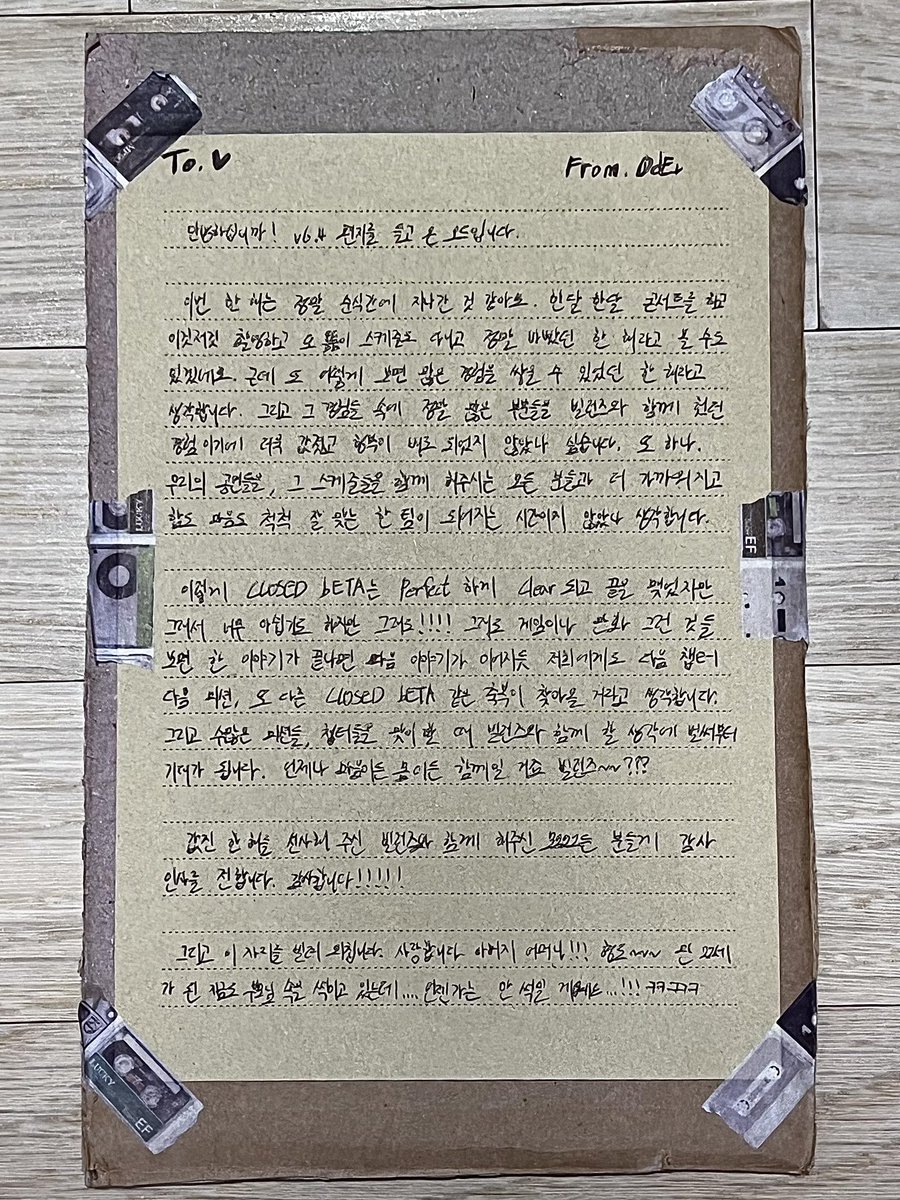 To.♥
From. OdE
안녕하십니까! v6.4 편지를 들고 온 오드입니다.
이번 한 해는 정말 순식간에 지나간 것 같아요. 한달 한달 콘서트를 하고
이것저것 촬영하고 또 많이 스케줄도 다니고 정말 바빴던 한 해라고 볼 수도
있겠네요. 근데 또 어떻게 보면 많은 경험을 쌓을 수 있었던 한 해라고
생각합니다. 그리고 그 경험들 속에 정말 많은 부분들을 빌런즈와 함께 했던
경험이기에 더욱 값졌고 행복이 배로 되었지 않았나 싶습니다. 또 하나.
우리의 공연들을, 그 스케줄들을 함께 해주시는 모든 분들과 더 가까워지고
합도 마음도 척척 잘 맞는 한 팀이 되어지는 시간이지 않았나 생각합니다.
이렇게 CLOSED bETA는 Perfect 하게 Clear 되고 끝을 맺었지만
그래서 너무 아쉽기도 하지만 그래도!!!! 그래도 게임이나 만화 그런 것들
보면 한 이야기가 끝나면 다음 이야기가 이어지듯 저희에게도 다음 챕터
다음 미션, 또 다른 CLOSED bETA 같은 축복이 찾아올 거라고 생각합니다.
그리고 수많은 미션들, 챕터들을 맞이할 때 빌런즈와 함께 할 생각에 벌써부터
기대가 됩니다. 언제나 마음이든 몸이든 함께일 거죠 빌런즈~~???
값진 한 해를 선사해 주신 빌런즈와 함께 해주신 모든 분들께 감사
인사를 전합니다. 감사합니다!!!!!
그리고 이 자리를 빌려 외칩니다. 사랑합니다 아버지 어머니!!! 형도~~~
가 된 지금도 부모님 속을 썩이고 있는데.... 언젠가는 안 썩일 게요...!!! ㅋㅋㅋㅋ
LUCKY
EF
EF
LUCKY
EF